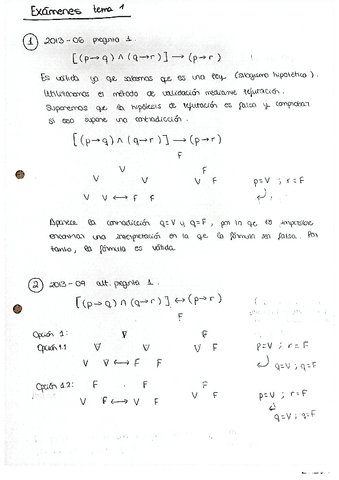 Exámenes tema 1
① 2013-06 pregunta 1.
[(p→q) ∧ (q→r)] → (p→r)
Es válida ya que sabemos que es una ley (silogismo hipotético).
Utilizaremos el método de validación mediante refutación.
Suponemos que la hipótesis de refutación es falsa y comprobar
si eso supone una contradicción.
[(p→q) ∧ (q→r)] → (p→r)
F
V F
V V V F p=V ; r=F
V V ↔ F F
Aparece la contradicción q=V y q=F, por lo que es imposible
encontrar una interpretación en la que la fórmula sea falsa. Por
tanto, la fórmula es válida.
② 2013-09 alt. pregunta 1.
[(p→q) ∧ (q→r)] ↔ (p→r)
F
Opción 1: V F
Opción 1.1 V V V F p=V ; r=F
V V ↔ F F q=V ; q=F
Opción 1.2: F F F
V F ↔ V F V F p=V ; r=F
q=V ; q=F